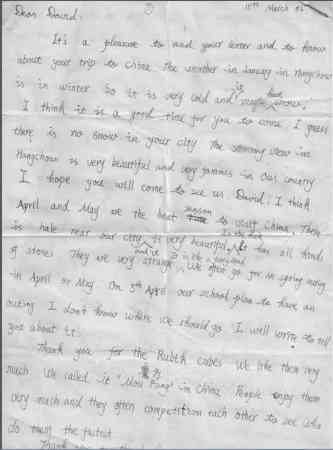 10th March
Dear David:
It's a pleasure to read your letter and to know
about your trip to China. The weather in January in Hangzhou
is in winter So it is very cold and
I think it is a good time for you to come. I guess
there is no snow in your city The snowing view in
Hangzhou is very beautiful and very famous in our country
I hope you will come to see us David! I think
April and May are the best season to visit China. There
is near our city is very beautiful, It has all kinds
of stones They are very strange We often go for in spring outing
in April or May. On 5th April our school plan to have an
outing I don't know where we should go I will write to tell
you about it.
Thank you for the Rubik cubes We like them very
much We called it "Mou Fang" in China People enjoy them
very much and they often competition each other to see who
do them the fastest
Thank you